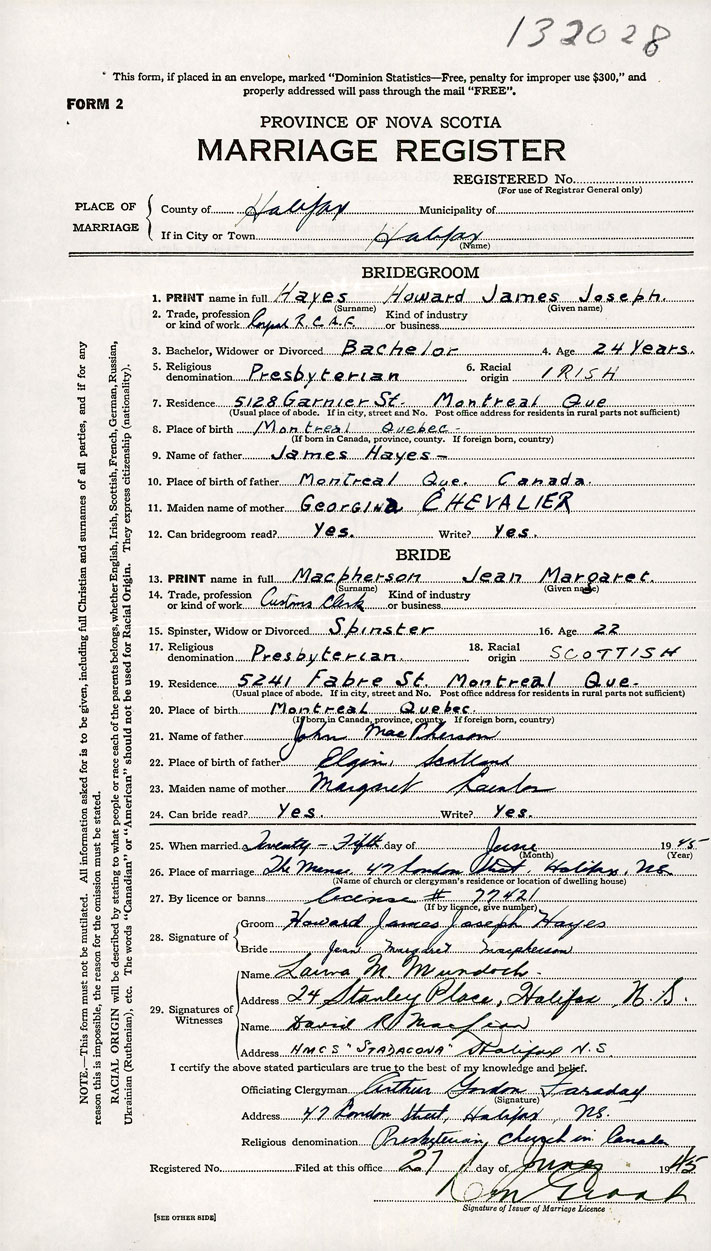 132028
This form, if placed in an envelope, marked "Dominion Statistics—Free, penalty for improper use $300," and
properly addressed will pass through the mail "FREE".
FORM 2
PROVINCE OF NOVA SCOTIA
MARRIAGE REGISTER
REGISTERED No.
(For use of Registrar General only)
PLACE OF MARRIAGE
County of Halifax Municipality of
If in City or Town Halifax
(Name)
BRIDEGROOM
1. PRINT name in full Hayes Howard James Joseph.
(Surname) (Given name)
2. Trade, profession or kind of work R.C.A.F. Kind of industry or business
3. Bachelor, Widower or Divorced Bachelor 4. Age 24 Years.
5. Religious denomination Presbyterian 6. Racial origin IRISH
7. Residence 5128 Garnier St. Montreal Que
(Usual place of abode. If in city, street and No. Post office address for residents in rural parts not sufficient)
8. Place of birth Montreal Quebec-
(If born in Canada, province, county. If foreign born, country)
9. Name of father James Hayes-
10. Place of birth of father Montreal Que. Canada.
11. Maiden name of mother Georgina CHEVALIER
12. Can bridegroom read? Yes. Write? Yes.
BRIDE
13. PRINT name in full Macpherson Jean Margaret.
(Surname) (Given name)
14. Trade, profession or kind of work Customs Clerk Kind of industry or business
15. Spinster, Widow or Divorced Spinster 16. Age 22
17. Religious denomination Presbyterian. 18. Racial origin SCOTTISH
19. Residence 5241 Fabre St. Montreal Que-
(Usual place of abode. If in city, street and No. Post office address for residents in rural parts not sufficient)
20. Place of birth Montreal Quebec.
(If born in Canada, province, county. If foreign born, country)
21. Name of father John MacPherson
22. Place of birth of father Elgin, Scotland
23. Maiden name of mother Margaret
24. Can bride read? Yes. Write? Yes.
25. When married Twenty-Fifth day of June 1945
(Month) (Year)
26. Place of marriage The Manse, 47 London Street, Halifax, N.S.
(Name of church or clergyman's residence or location of dwelling house)
27. By licence or banns License # 77421
(If by licence, give number)
28. Signature of
Groom Howard James Joseph Hayes
Bride Jean Margaret Macpherson
29. Signatures of Witnesses
Name M. Murdoch-
Address 24 Stanley Place, Halifax, N.S.
Name David R
Address HMCS "STADACONA" Halifax N.S.
I certify the above stated particulars are true to the best of my knowledge and belief.
Officiating Clergyman Arthur Gordon Faraday
(Signature)
Address 47 London Street, Halifax, NS.
Religious denomination Presbyterian Church in Canada
Registered No. Filed at this office 27 day of June 1945
Signature of Issuer of Marriage Licence
[SEE OTHER SIDE]
NOTE.—This form must not be mutilated. All information asked for is to be given, including full Christian and surnames of all parties, and if for any
reason this is impossible, the reason for the omission must be stated.
RACIAL ORIGIN will be described by stating to what people or race each of the parents belongs, whether English, Irish, Scottish, French, German, Russian,
Ukrainian (Ruthenian), etc. The words "Canadian" or "American" should not be used for Racial Origin. They express citizenship (nationality).